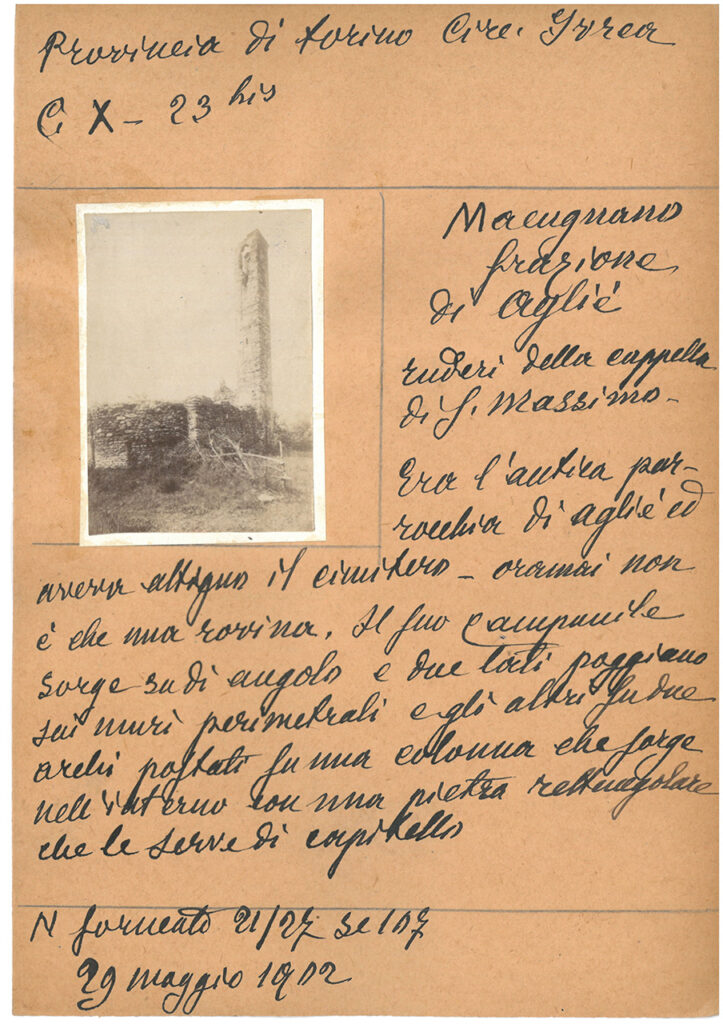 Provincia di torino Circ. Ivrea
C. X - 23 bis
Macugnano
frazione
di aglié
ruderi della cappella
di S. Massimo -
Era l'antica par-
rocchia di aglié ed
aveva attiguo il cimitero - oramai non
é che una rovina. Il suo campanile
sorge su di angolo e due lati poggiano
sui muri perimetrali e gli altri su due
archi postati su una colonna che sorge
nell'interno con una pietra rettangolare
che le serve di capitello
N formato 21/27 se 107
29 maggio 1902